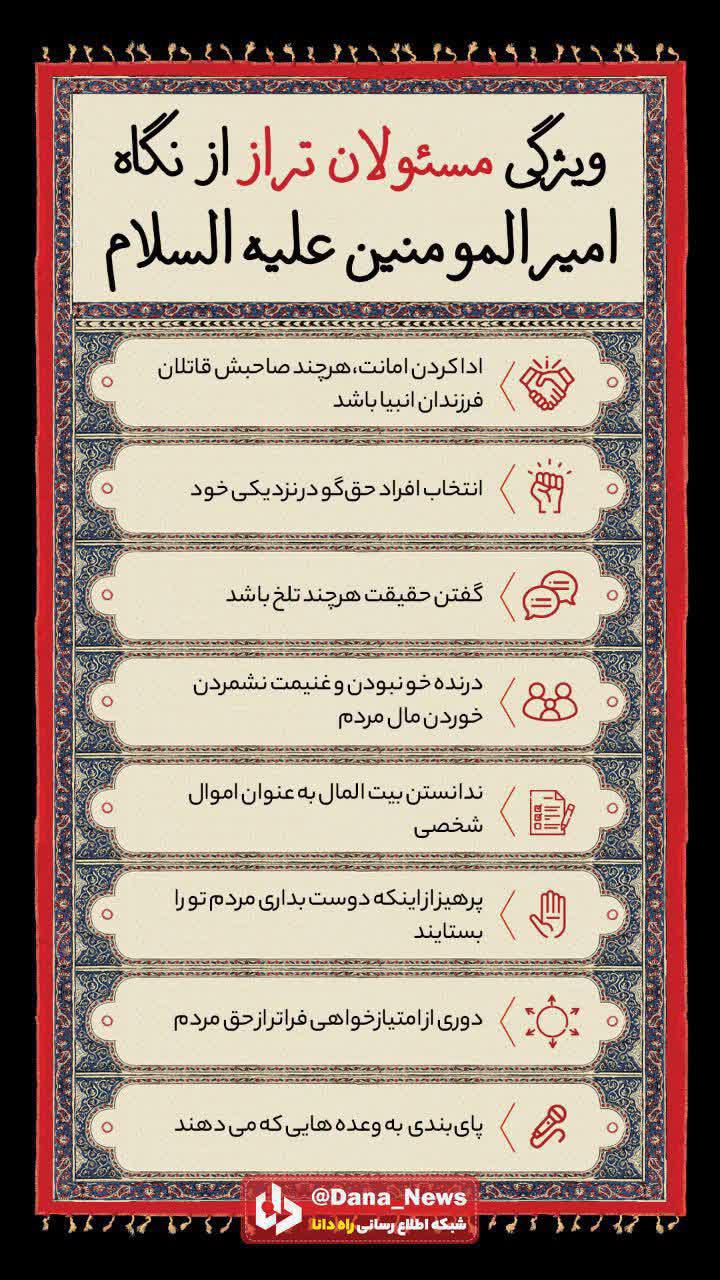 ویژگی مسئولان تراز از نگاه
امیرالمومنین علیه السلام
ادا کردن امانت، هرچند صاحبش قاتلان
فرزندان انبیا باشد
انتخاب افراد حق‌گو در نزدیکی خود
گفتن حقیقت هرچند تلخ باشد
درنده خو نبودن و غنیمت نشمردن
خوردن مال مردم
ندانستن بیت المال به عنوان اموال
شخصی
پرهیز از اینکه دوست بداری مردم تو را
بستایند
دوری از امتیازخواهی فراتر از حق مردم
پای‌بندی به وعده هایی که می دهند
@Dana_News
شبکه اطلاع رسانی راه دانا